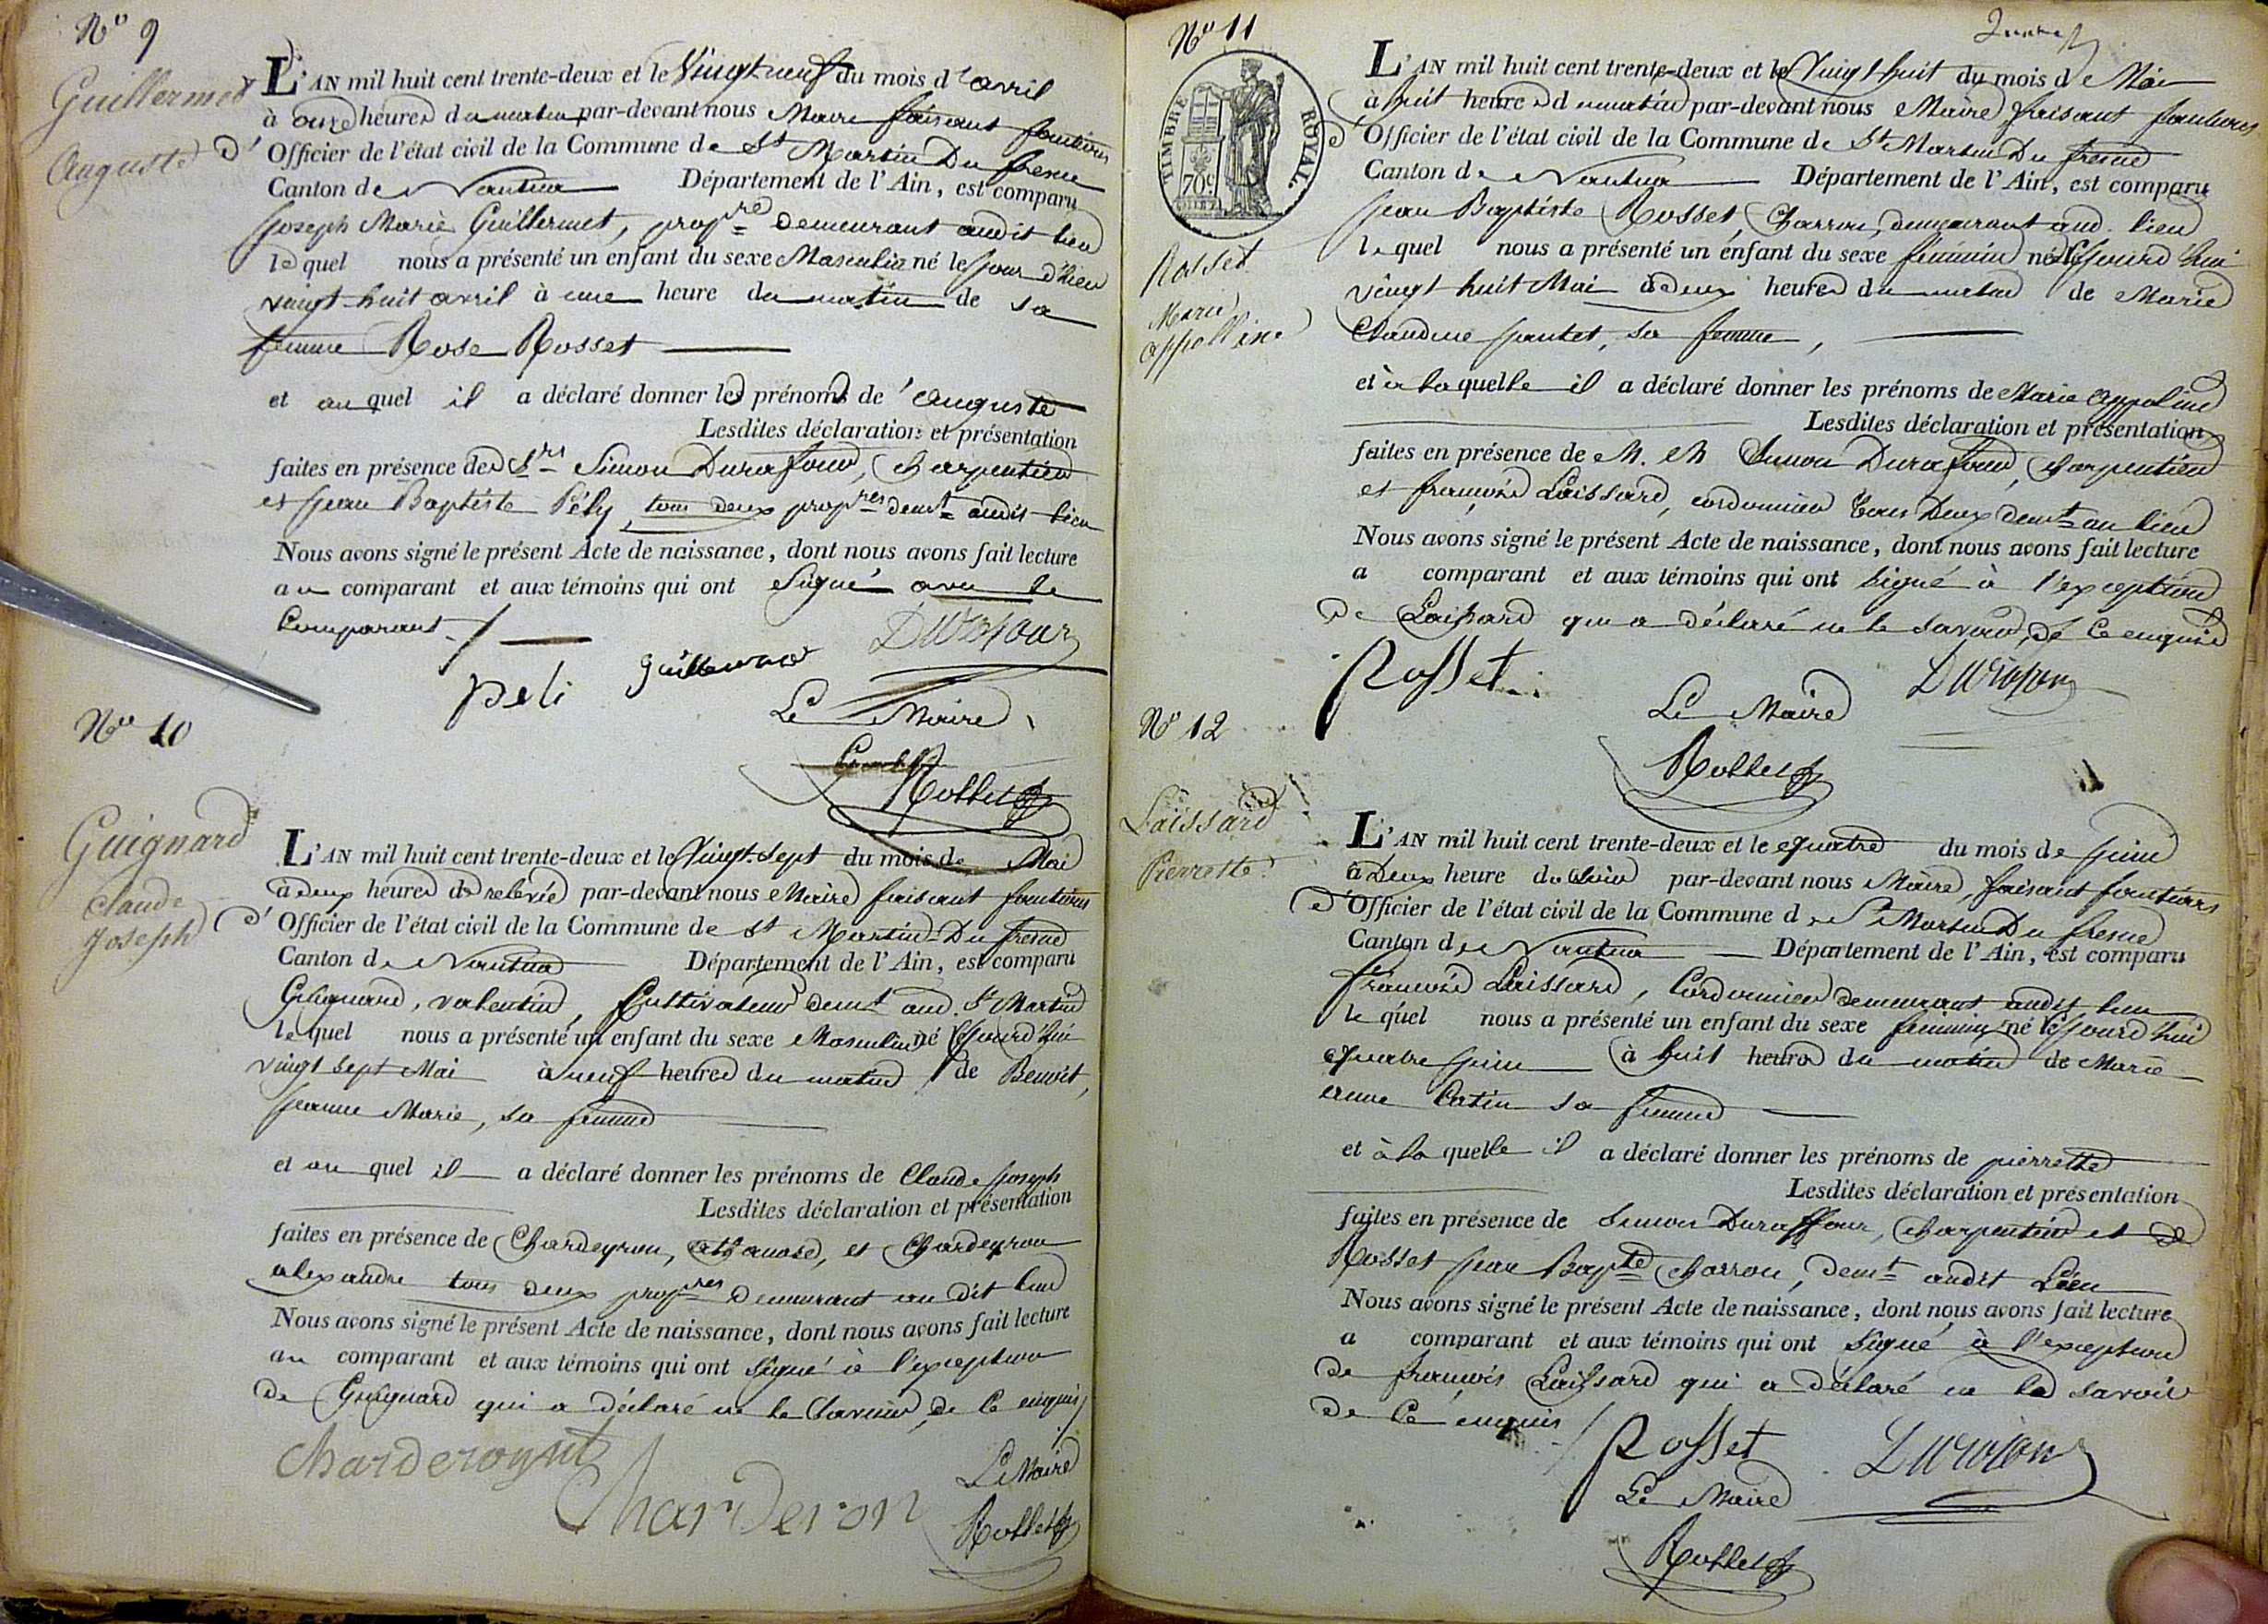 Nº 9
Guillermet
Auguste
L'AN mil huit cent trente-deux et le Vingt neuf du mois d'avril
à onze heures du matin par-devant nous Maire faisant fonctions
d'Officier de l'état civil de la Commune de St Martin Du fresne
Canton de Nantua Département de l'Ain, est comparu
Joseph Marie Guillermet, propre demeurant audit lieu
lequel nous a présenté un enfant du sexe Masculin né le jour d'hier
vingt-huit avril à une heure du matin de sa
femme Rose Rosset
et au quel il a déclaré donner les prénoms de Auguste
Lesdites déclaration et présentation
faites en présence des Srs Simon Durafour, Charpentier
et Jean Baptiste Pély, tous deux propres demt audit lieu
Nous avons signé le présent Acte de naissance, dont nous avons fait lecture
au comparant et aux témoins qui ont Signé avec le
Comparant
Durafour
peli guillermet
Le Maire
Rollet
Nº 10
Guignard
Claude
Joseph
L'AN mil huit cent trente-deux et le Vingt-Sept du mois de Mai
à deux heures de relevée par-devant nous Maire faisant fonctions
d'Officier de l'état civil de la Commune de St Martin-Du fresne
Canton de Nantua Département de l'Ain, est comparu
Guignard, valentin, Cultivateur demt aud. St Martin
lequel nous a présenté un enfant du sexe Masculin né cejourd'hui
vingt sept Mai à neuf heures du matin de Benoit,
Jeanne Marie, sa femme
et au quel il a déclaré donner les prénoms de Claude Joseph
Lesdites déclaration et présentation
faites en présence de Chardeyron, athanase, et Chardeyron
alexandre tous deux propres demeurant au dit lieu
Nous avons signé le présent Acte de naissance, dont nous avons fait lecture
au comparant et aux témoins qui ont signé à l'exception
de Guignard qui a déclaré ne le savoir, de ce enquis
Charderon
Le Maire
Rollet
Nº 11
TIMBRE ROYAL.
70c
Rosset
Marie
appolline
L'AN mil huit cent trente-deux et le Vingt huit du mois de Mai
à huit heures du matin par-devant nous Maire faisant fonctions
d'Officier de l'état civil de la Commune de St Martin Du fresne
Canton de Nantua Département de l'Ain, est comparu
Jean Baptiste Rosset, Charron, demeurant aud. lieu
lequel nous a présenté un enfant du sexe féminin né cejourd'hui
vingt huit Mai à deux heures du matin de Marie
Claudine Jantet, sa femme,
et à laquelle il a déclaré donner les prénoms de Marie Appoline
Lesdites déclaration et présentation
faites en présence de M. M Simon Durafour, Charpentier
et françois Laissard, cordonnier Tous Deux demt au lieu
Nous avons signé le présent Acte de naissance, dont nous avons fait lecture
a comparant et aux témoins qui ont signé à l'exception
de Laissard qui a déclaré ne le savoir, de ce enquis
Rosset Durafour
Le Maire
Rollet
Nº 12
Laissard
Pierrette
L'AN mil huit cent trente-deux et le quatre du mois de Juin
à Deux heure du soir par-devant nous Maire, faisant fonctions
d'Officier de l'état civil de la Commune de St Martin Du fresne
Canton de Nantua Département de l'Ain, est comparu
françois Laissard, Cordonnier demeurant audit lieu
le quel nous a présenté un enfant du sexe féminin né cejourd'hui
quatre Juin à huit heures du matin de Marie
anne Catin sa femme
et à la quelle il a déclaré donner les prénoms de pierrette
Lesdites déclaration et présentation
faites en présence de Simon Duraffour, Charpentier et de
Rosset Jean Bapte Charron, demt audit Lieu
Nous avons signé le présent Acte de naissance, dont nous avons fait lecture
a comparant et aux témoins qui ont signé à l'exception
de françois Laissard qui a déclaré ne le savoir
de ce enquis
Rosset Durafour
Le Maire
Rollet